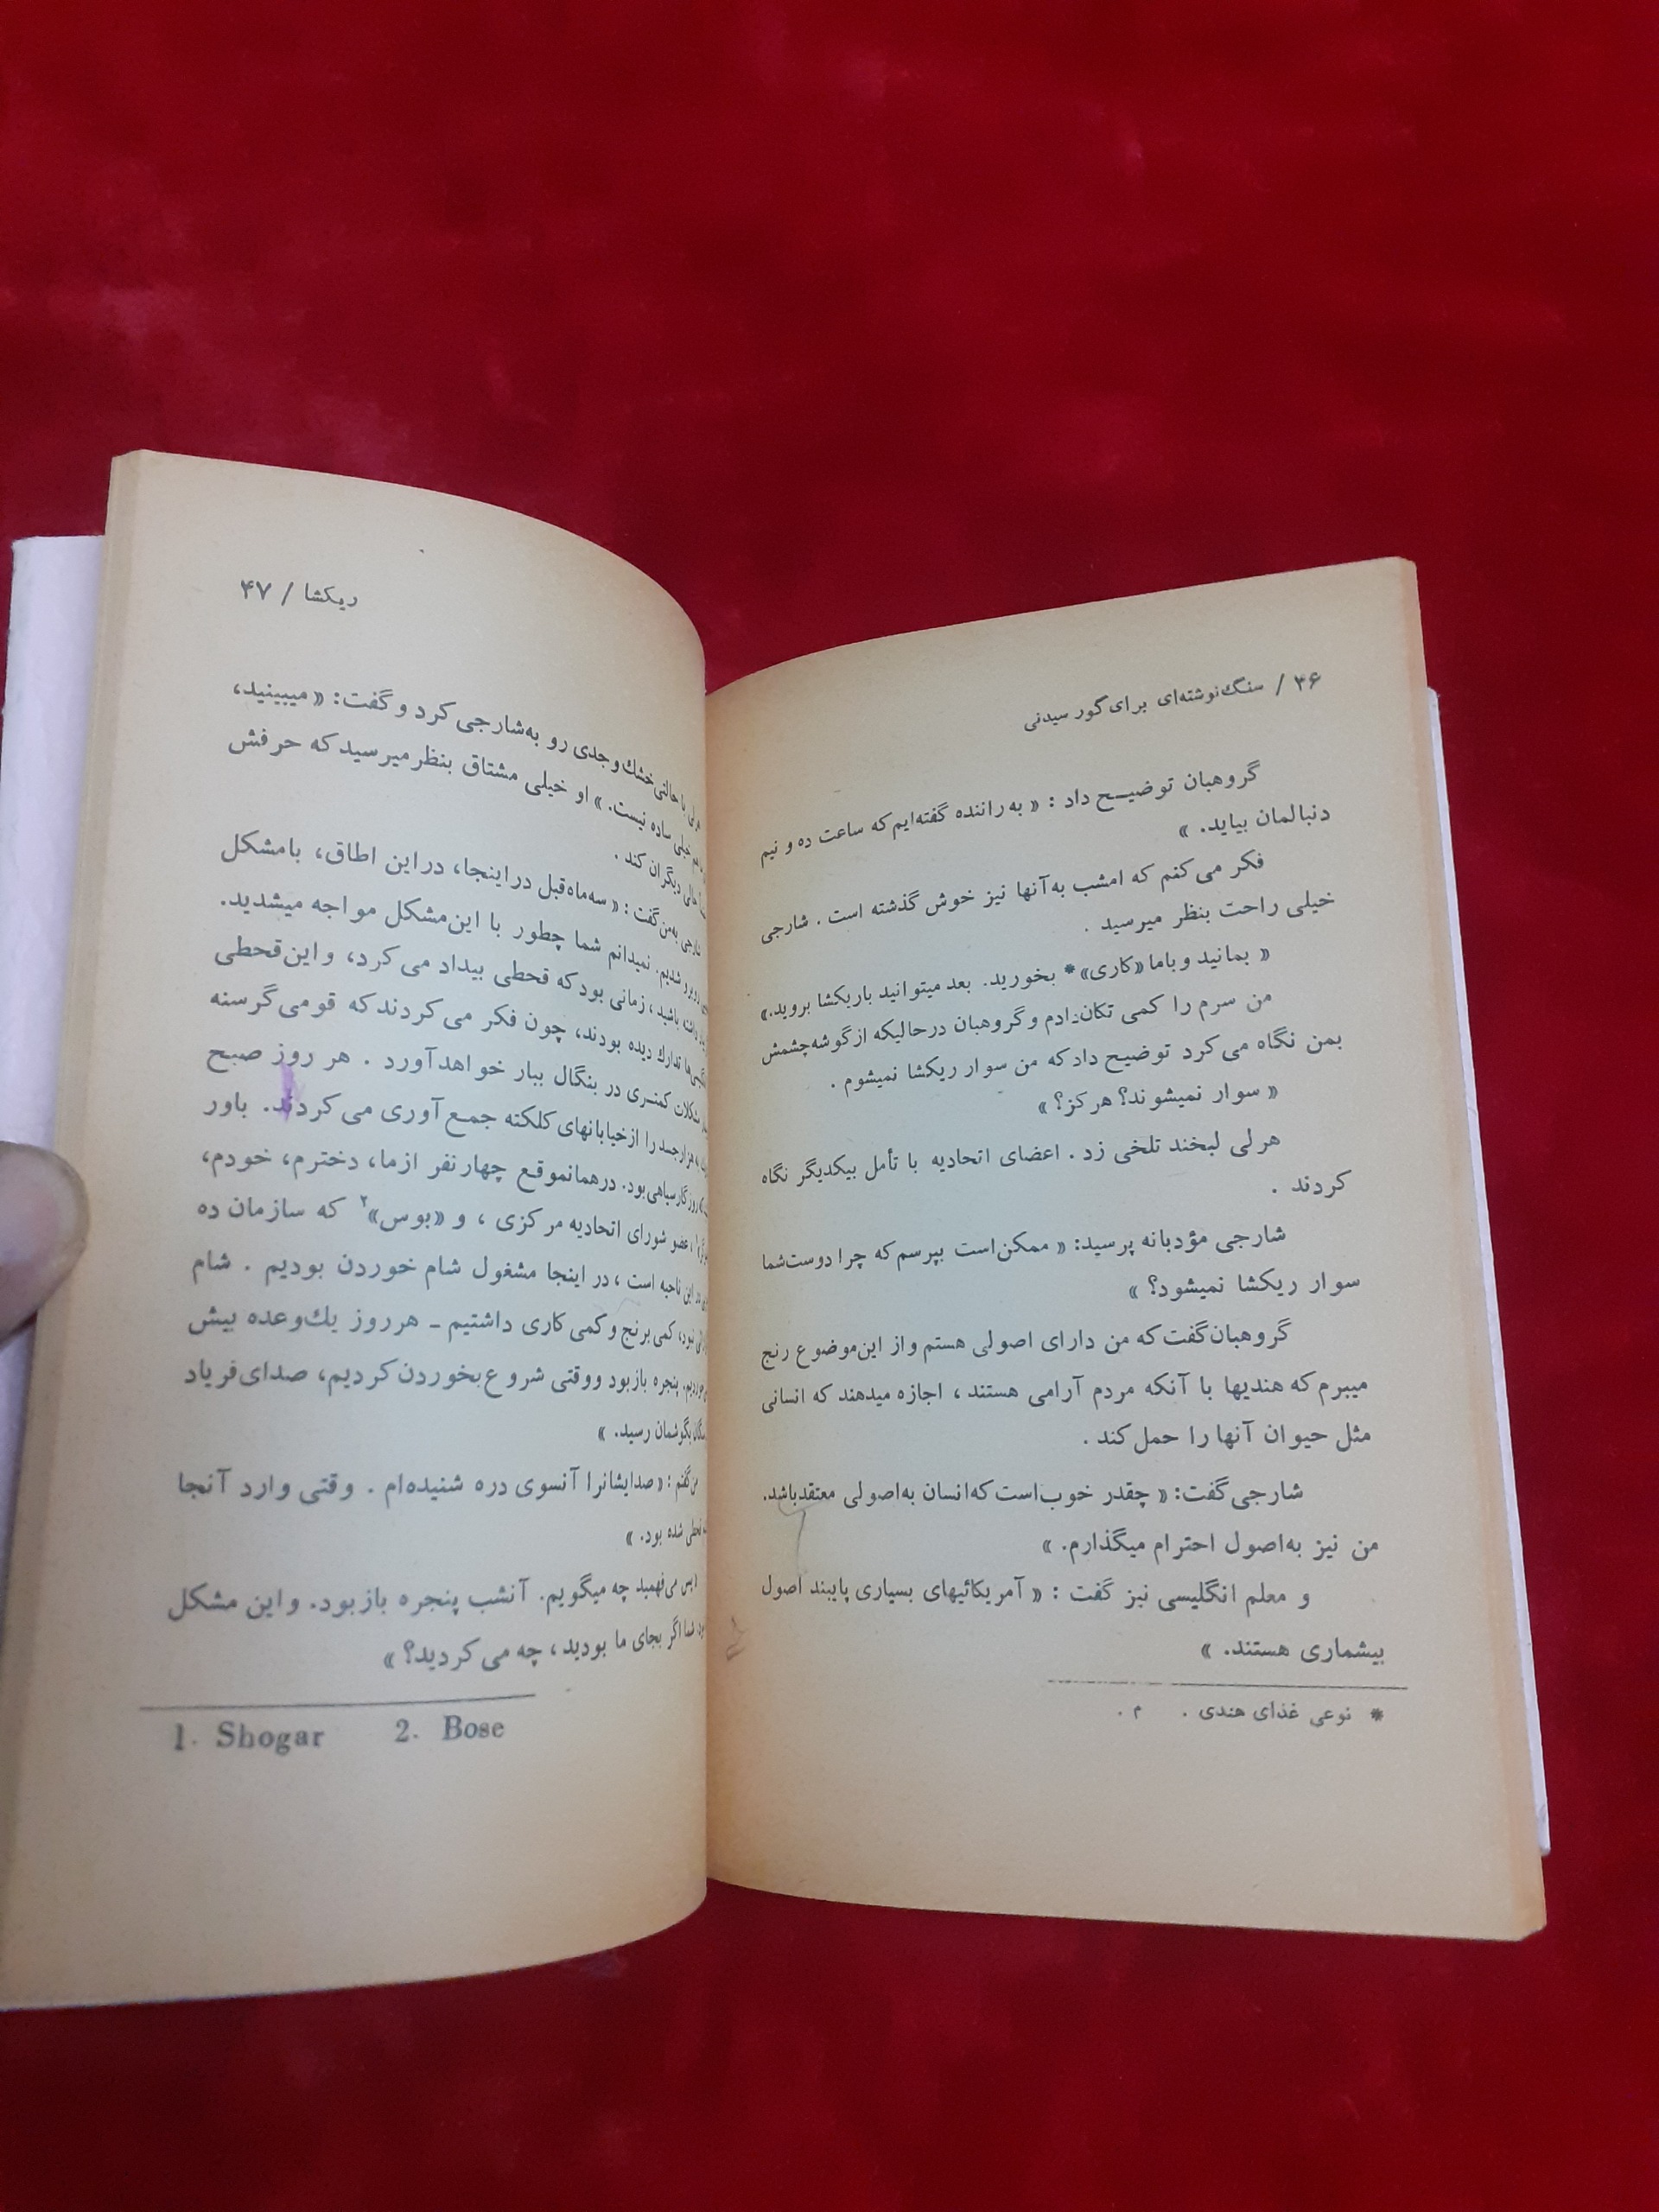 ۴۶ / سنگ‌نوشته‌ای برای گور سیدنی
گروهبان توضیح داد : « به راننده گفته‌ایم که ساعت ده و نیم
دنبالمان بیاید. »
فکر می‌کنم که امشب به آنها نیز خوش گذشته است . شارجی
خیلی راحت بنظر میرسید .
« بمانید و باما «کاری»* بخورید. بعد میتوانید باریکشا بروید.»
من سرم را کمی تکان‌دادم و گروهبان درحالیکه از گوشه چشمش
بمن نگاه می‌کرد توضیح داد که من سوار ریکشا نمیشوم .
« سوار نمیشوند؟ هرکز؟ »
هرلی لبخند تلخی زد . اعضای اتحادیه با تأمل بیکدیگر نگاه
کردند .
شارجی مؤدبانه پرسید: « ممکن‌است بپرسم که چرا دوست‌شما
سوار ریکشا نمیشود؟ »
گروهبان گفت که من دارای اصولی هستم و از این‌موضوع رنج
میبرم که هندیها با آنکه مردم آرامی هستند ، اجازه میدهند که انسانی
مثل حیوان آنها را حمل کند .
شارجی گفت: « چقدر خوب‌است که انسان به‌اصولی معتقدباشد.
من نیز به‌اصول احترام میگذارم. »
و معلم انگلیسی نیز گفت : « آمریکائیهای بسیاری پایبند اصول
بیشماری هستند. »
* نوعی غذای هندی . م .
ریکشا / ۴۷
هرلی با حالتی خشك و جدی رو به‌شارجی کرد و گفت: « میبینید،
خیلی ساده نیست. » او خیلی مشتاق بنظر میرسید که حرفش
حالی دیگران کند .
شارجی به‌من گفت : « سه‌ماه قبل در اینجا، در این اطاق، بامشکل
روبرو شدیم. نمیدانم شما چطور با این‌مشکل مواجه میشدید.
باشید ، زمانی بود که قحطی بیداد می‌کرد، و این‌قحطی
تدارك دیده بودند، چون فکر می‌کردند که قومی گرسنه
مشکلات کمتری در بنگال ببار خواهد آورد . هر روز صبح
هزار جسد را از خیابانهای کلکته جمع‌آوری می‌کردند. باور
روزگار سیاهی بود. در همانموقع چهار نفر از ما، دخترم، خودم،
عضو شورای اتحادیه مرکزی ، و «بوس»۲ که سازمان ده
این ناحیه است ، در اینجا مشغول شام خوردن بودیم . شام
نبود، کمی برنج و کمی کاری داشتیم ـ هر روز یك‌وعده بیش
پنجره باز بود و وقتی شروع بخوردن کردیم، صدای فریاد
بگوشمان رسید. »
من گفتم : « صدایشانرا آنسوی دره شنیده‌ام . وقتی وارد آنجا
قحطی شده بود. »
« پس می‌فهمید چه میگویم. آنشب پنجره باز بود. و این مشکل
شما اگر بجای ما بودید ، چه می‌کردید؟ »
1. Shogar 2. Bose